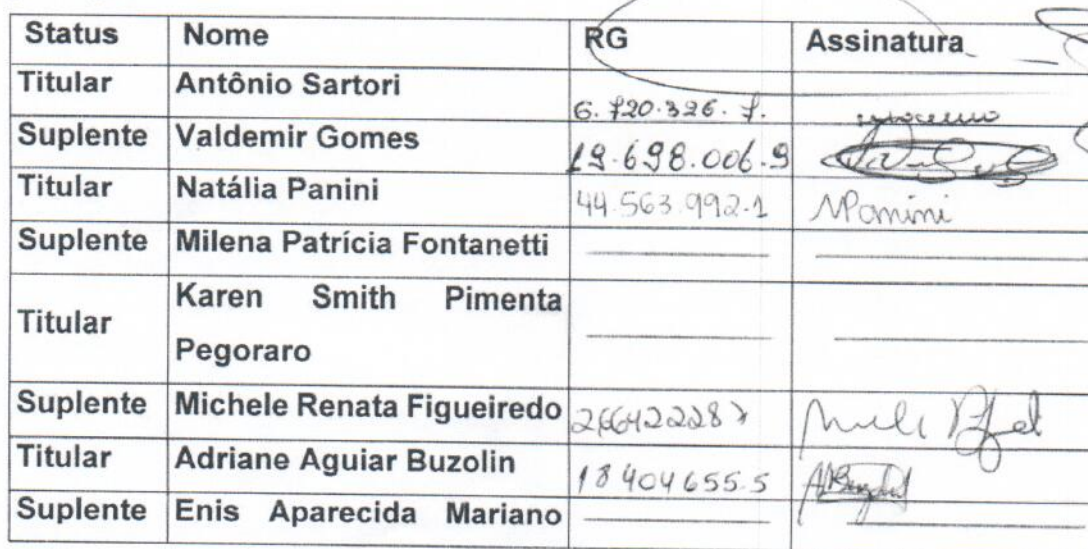 Status Nome RG Assinatura
Titular Antônio Sartori 6.720.326.7.
Suplente Valdemir Gomes 19.698.006.9
Titular Natália Panini 44.563.992-1 NPanini
Suplente Milena Patrícia Fontanetti
Titular Karen Smith Pimenta
Pegoraro
Suplente Michele Renata Figueiredo
Titular Adriane Aguiar Buzolin 18404655-5
Suplente Enis Aparecida Mariano